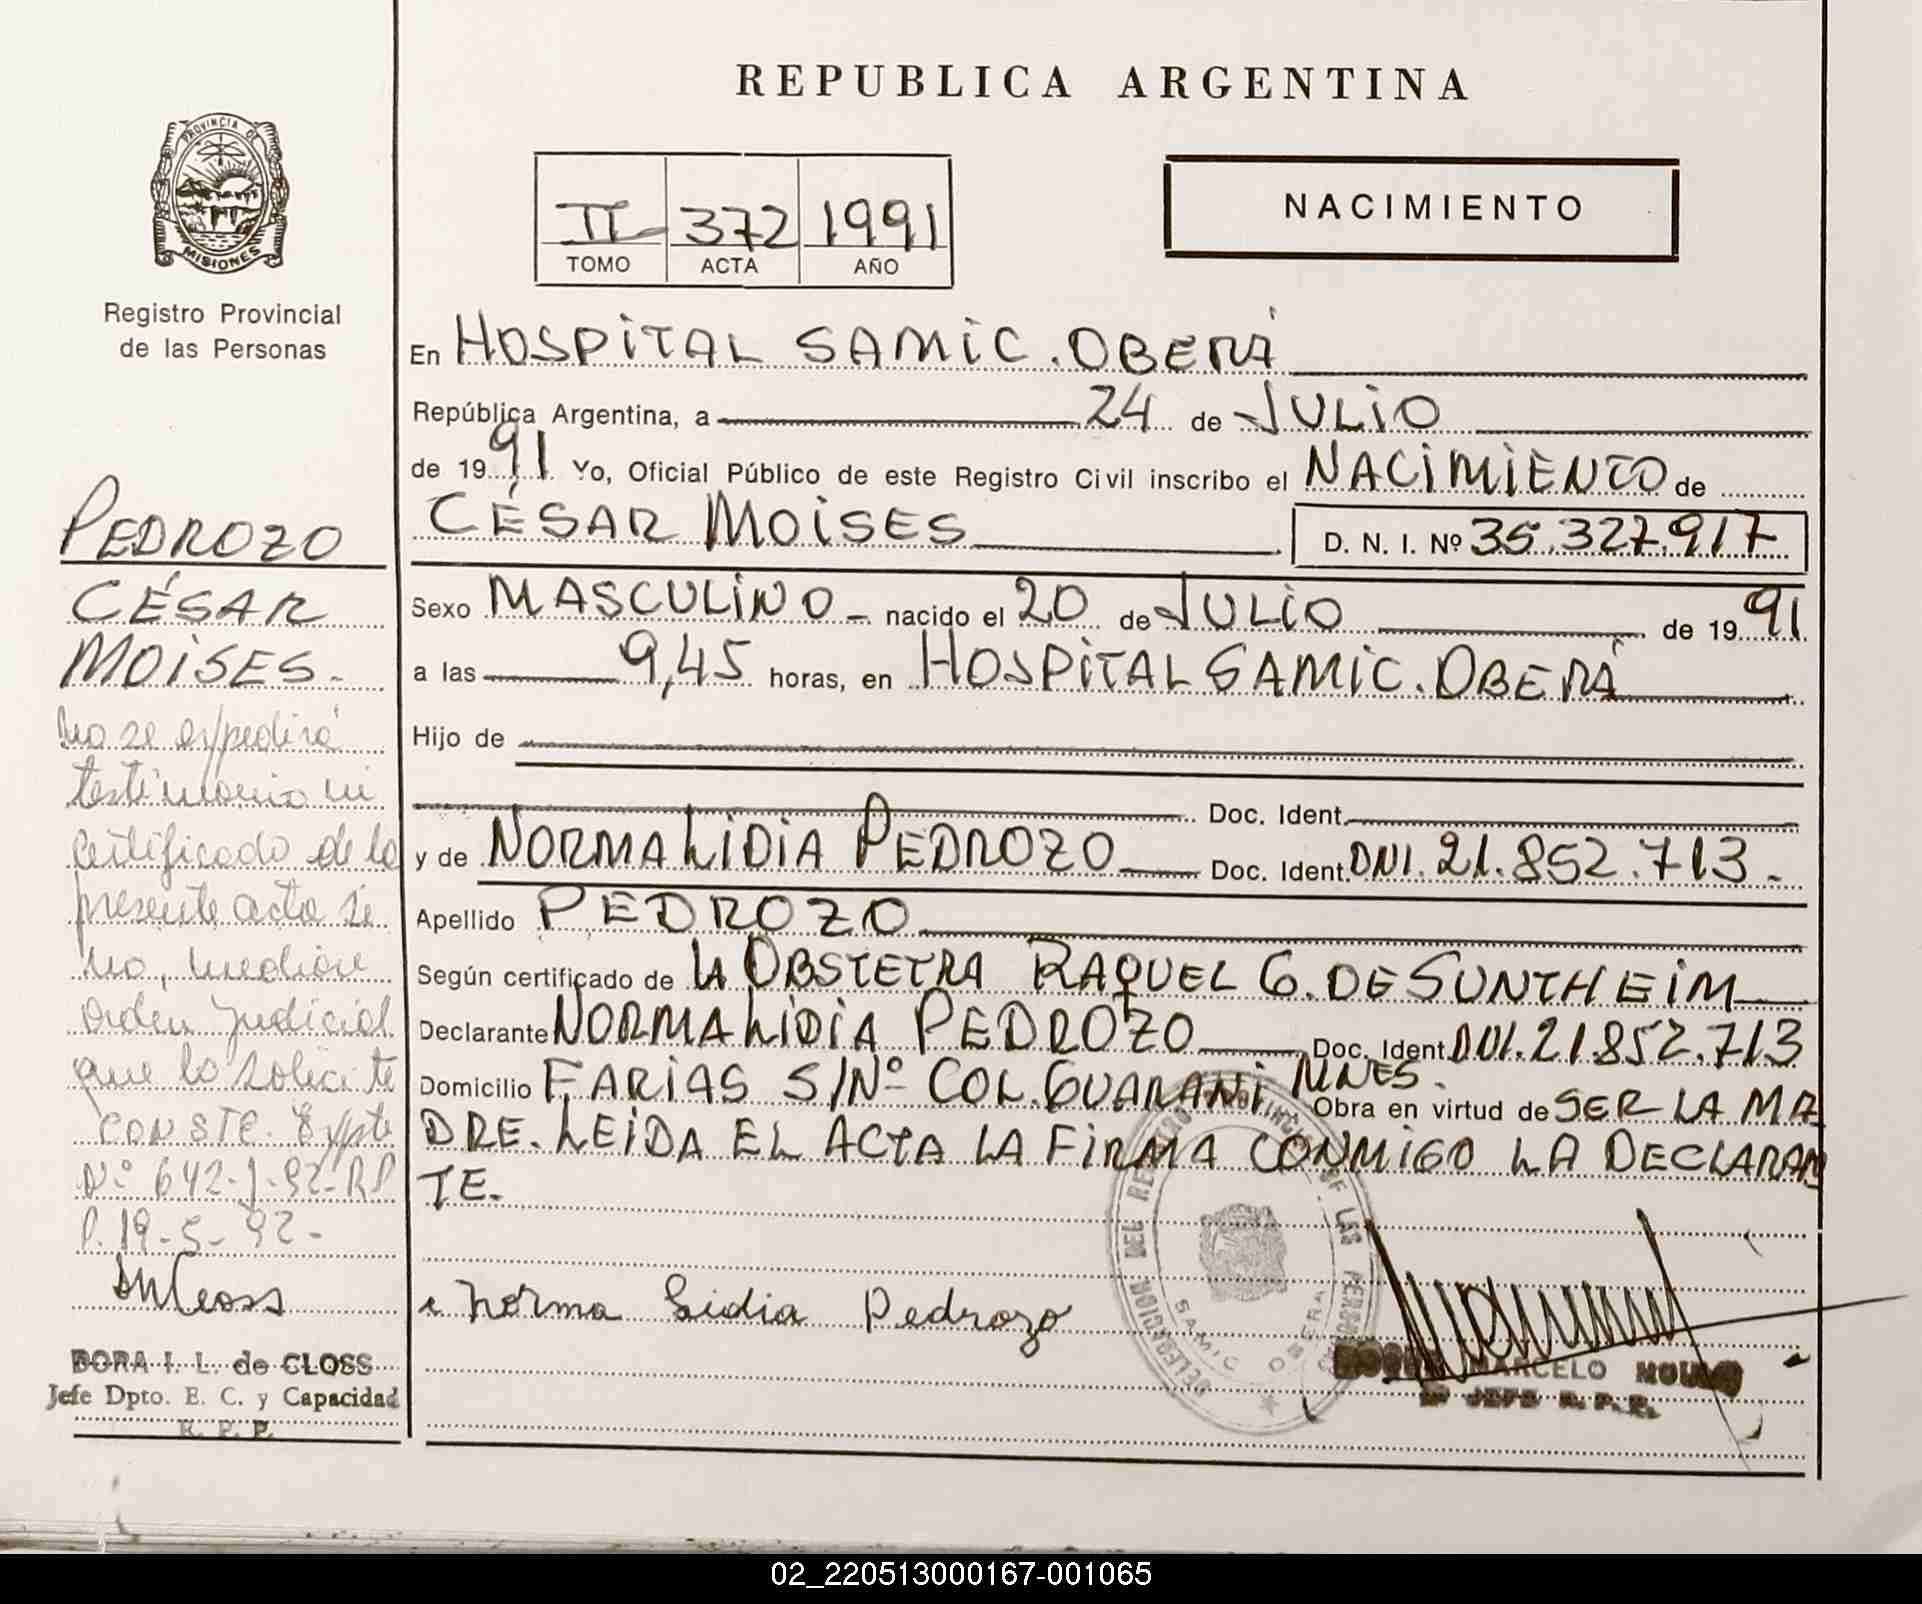 REPUBLICA ARGENTINA
PROVINCIA DE
MISIONES
Registro Provincial
de las Personas
II 372 1991
TOMO ACTA AÑO
NACIMIENTO
En HOSPITAL SAMIC. OBERÁ
República Argentina, a 24 de JULIO
de 1991 Yo, Oficial Público de este Registro Civil inscribo el NACIMIENTO de
CÉSAR MOISES D. N. I. Nº 35.327.917
Sexo MASCULINO - nacido el 20 de JULIO de 1991
a las 9,45 horas, en HOSPITAL SAMIC. OBERÁ
Hijo de
Doc. Ident.
y de NORMA LIDIA PEDROZO Doc. Ident. DNI. 21.852.713.-
Apellido PEDROZO
Según certificado de LA OBSTETRA RAQUEL G. DE SUNTHEIM
Declarante NORMA LIDIA PEDROZO Doc. Ident. DNI. 21.852.713
Domicilio FARIAS S/Nº COL. GUARANI MNES. Obra en virtud de SER LA MA
DRE. LEIDA EL ACTA LA FIRMA CONMIGO LA DECLARAN
TE.
Norma Lidia Pedrozo
DELEGACION DEL REGISTRO PROVINCIAL DE LAS PERSONAS
SAMIC OBERA
MARCELO
JEFE R. P. P.
PEDROZO
CÉSAR
MOISES.-
No se expedirá
testimonio ni
certificado de la
presente acta si
no, median
orden judicial
que lo solicite
CONSTE. Expte
Nº 642-J-92-RP
P. 19-5-92-
DORA I. L. de CLOSS
Jefe Dpto. E. C. y Capacidad
R. P. P.
02_220513000167-001065